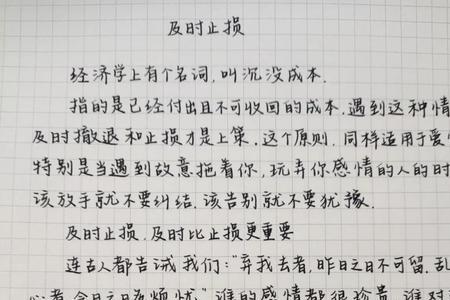 及时止损
经济学上有个名词,叫沉没成本.
指的是已经付出且不可收回的成本.遇到这种情
及时撤退和止损才是上策.这个原则.同样适用于爱
特别是当遇到故意拖着你,玩弄你感情的人的时
该放手就不要纠结.该告别就不要犹豫.
及时止损.及时比止损更重要
连古人都告诫我们:“弃我去者,昨日之日不可留.乱
心者,今日之日多烦忧”谁的感情都很珍贵.谁